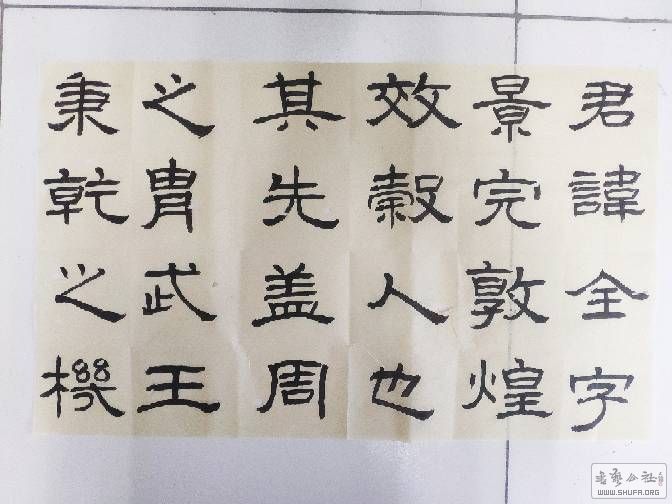 君諱全字
景完敦煌
效穀人也
其先盖周
之胄武王
秉乾之機
WWW.SHUFA.ORG